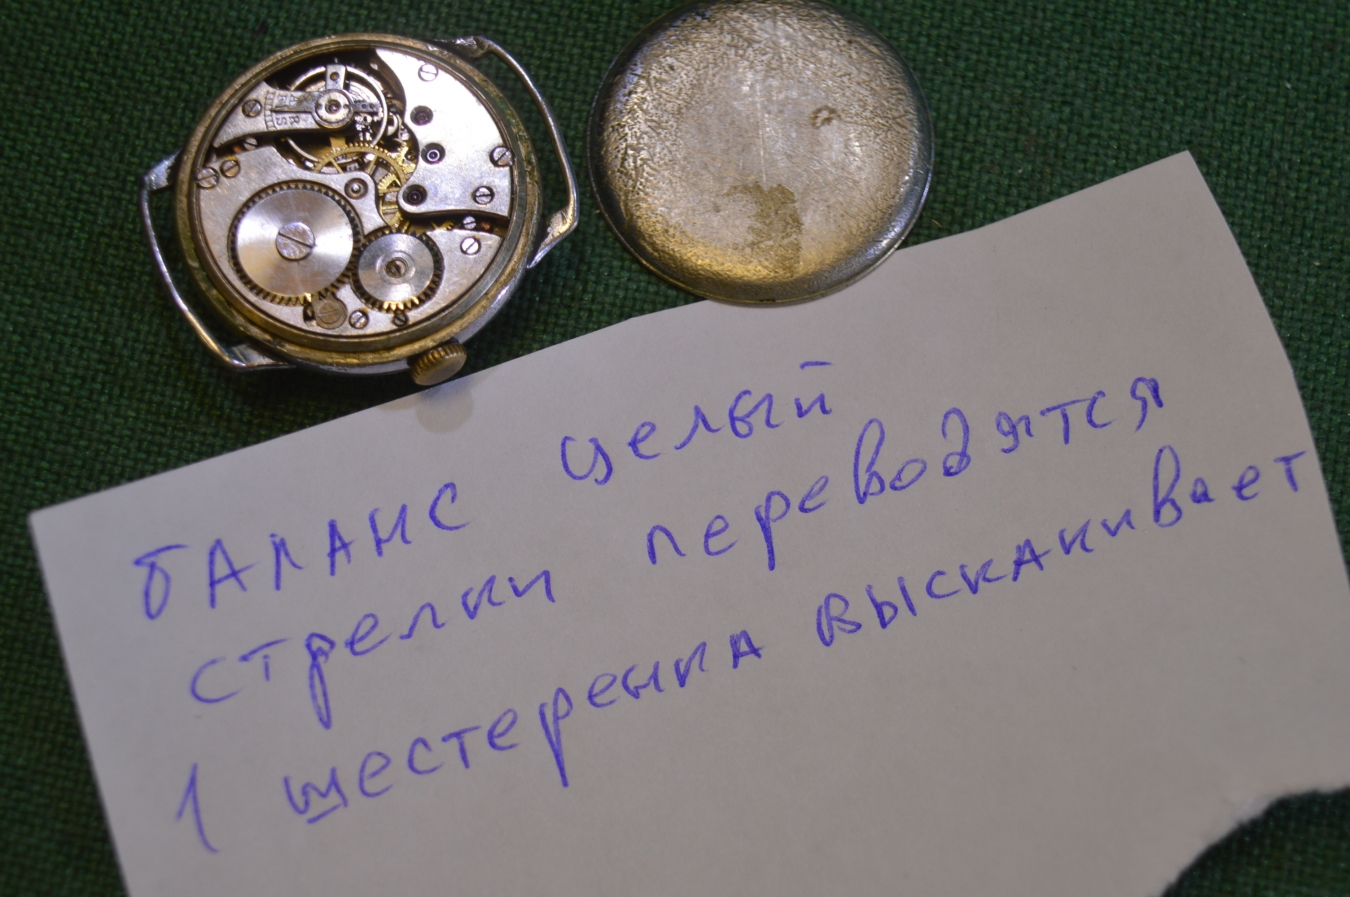 баланс целый
стрелки переводятся
1 шестеренка выскакивает